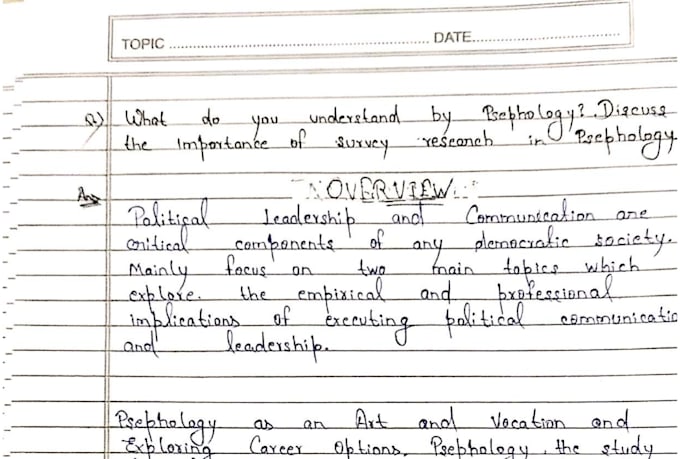 TOPIC ........................................ DATE........................
Q) What do you understand by Psephology? Discuss
the Importance of survey research in Psephology
Ans OVERVIEW
Political Leadership and Communication are
critical components of any democratic society.
Mainly focus on two main topics which
explore. the empirical and professional
implications of executing political communicatio
and leadership.
Psephology as an Art and Vocation and
Exploring Career Options. Psephology, the study